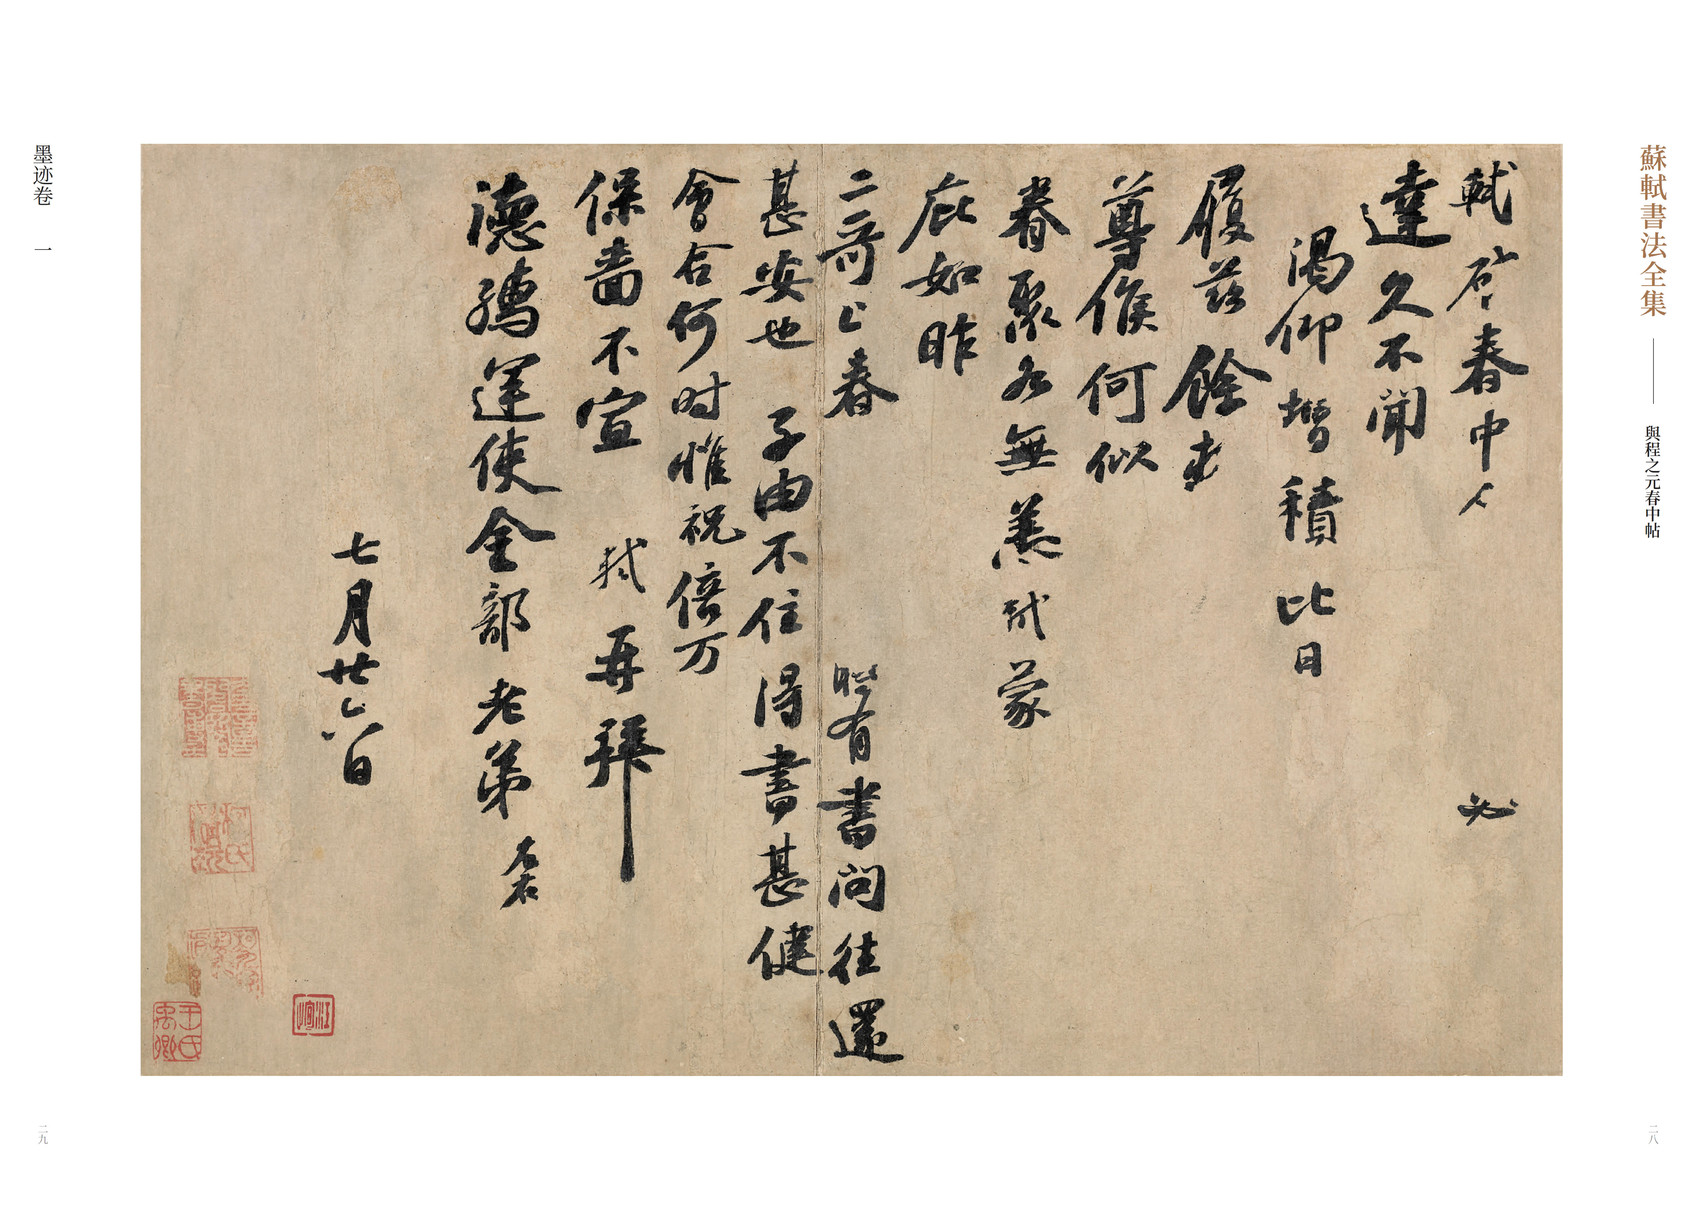 蘇軾書法全集
與程之元春中帖
軾啓春中人必
達久不聞
渴仰增積比日
履茲餘暑
尊候何似
眷聚各無恙軾蒙
庇如昨
二哥上春
有書問往還
甚安也子由不住得書甚健
會合何時惟祝倍万
保嗇不宣軾再拜
德孺運使金部老弟左右
七月廿六日
墨迹卷一
汪恂
王氏禹卿
二八
二九